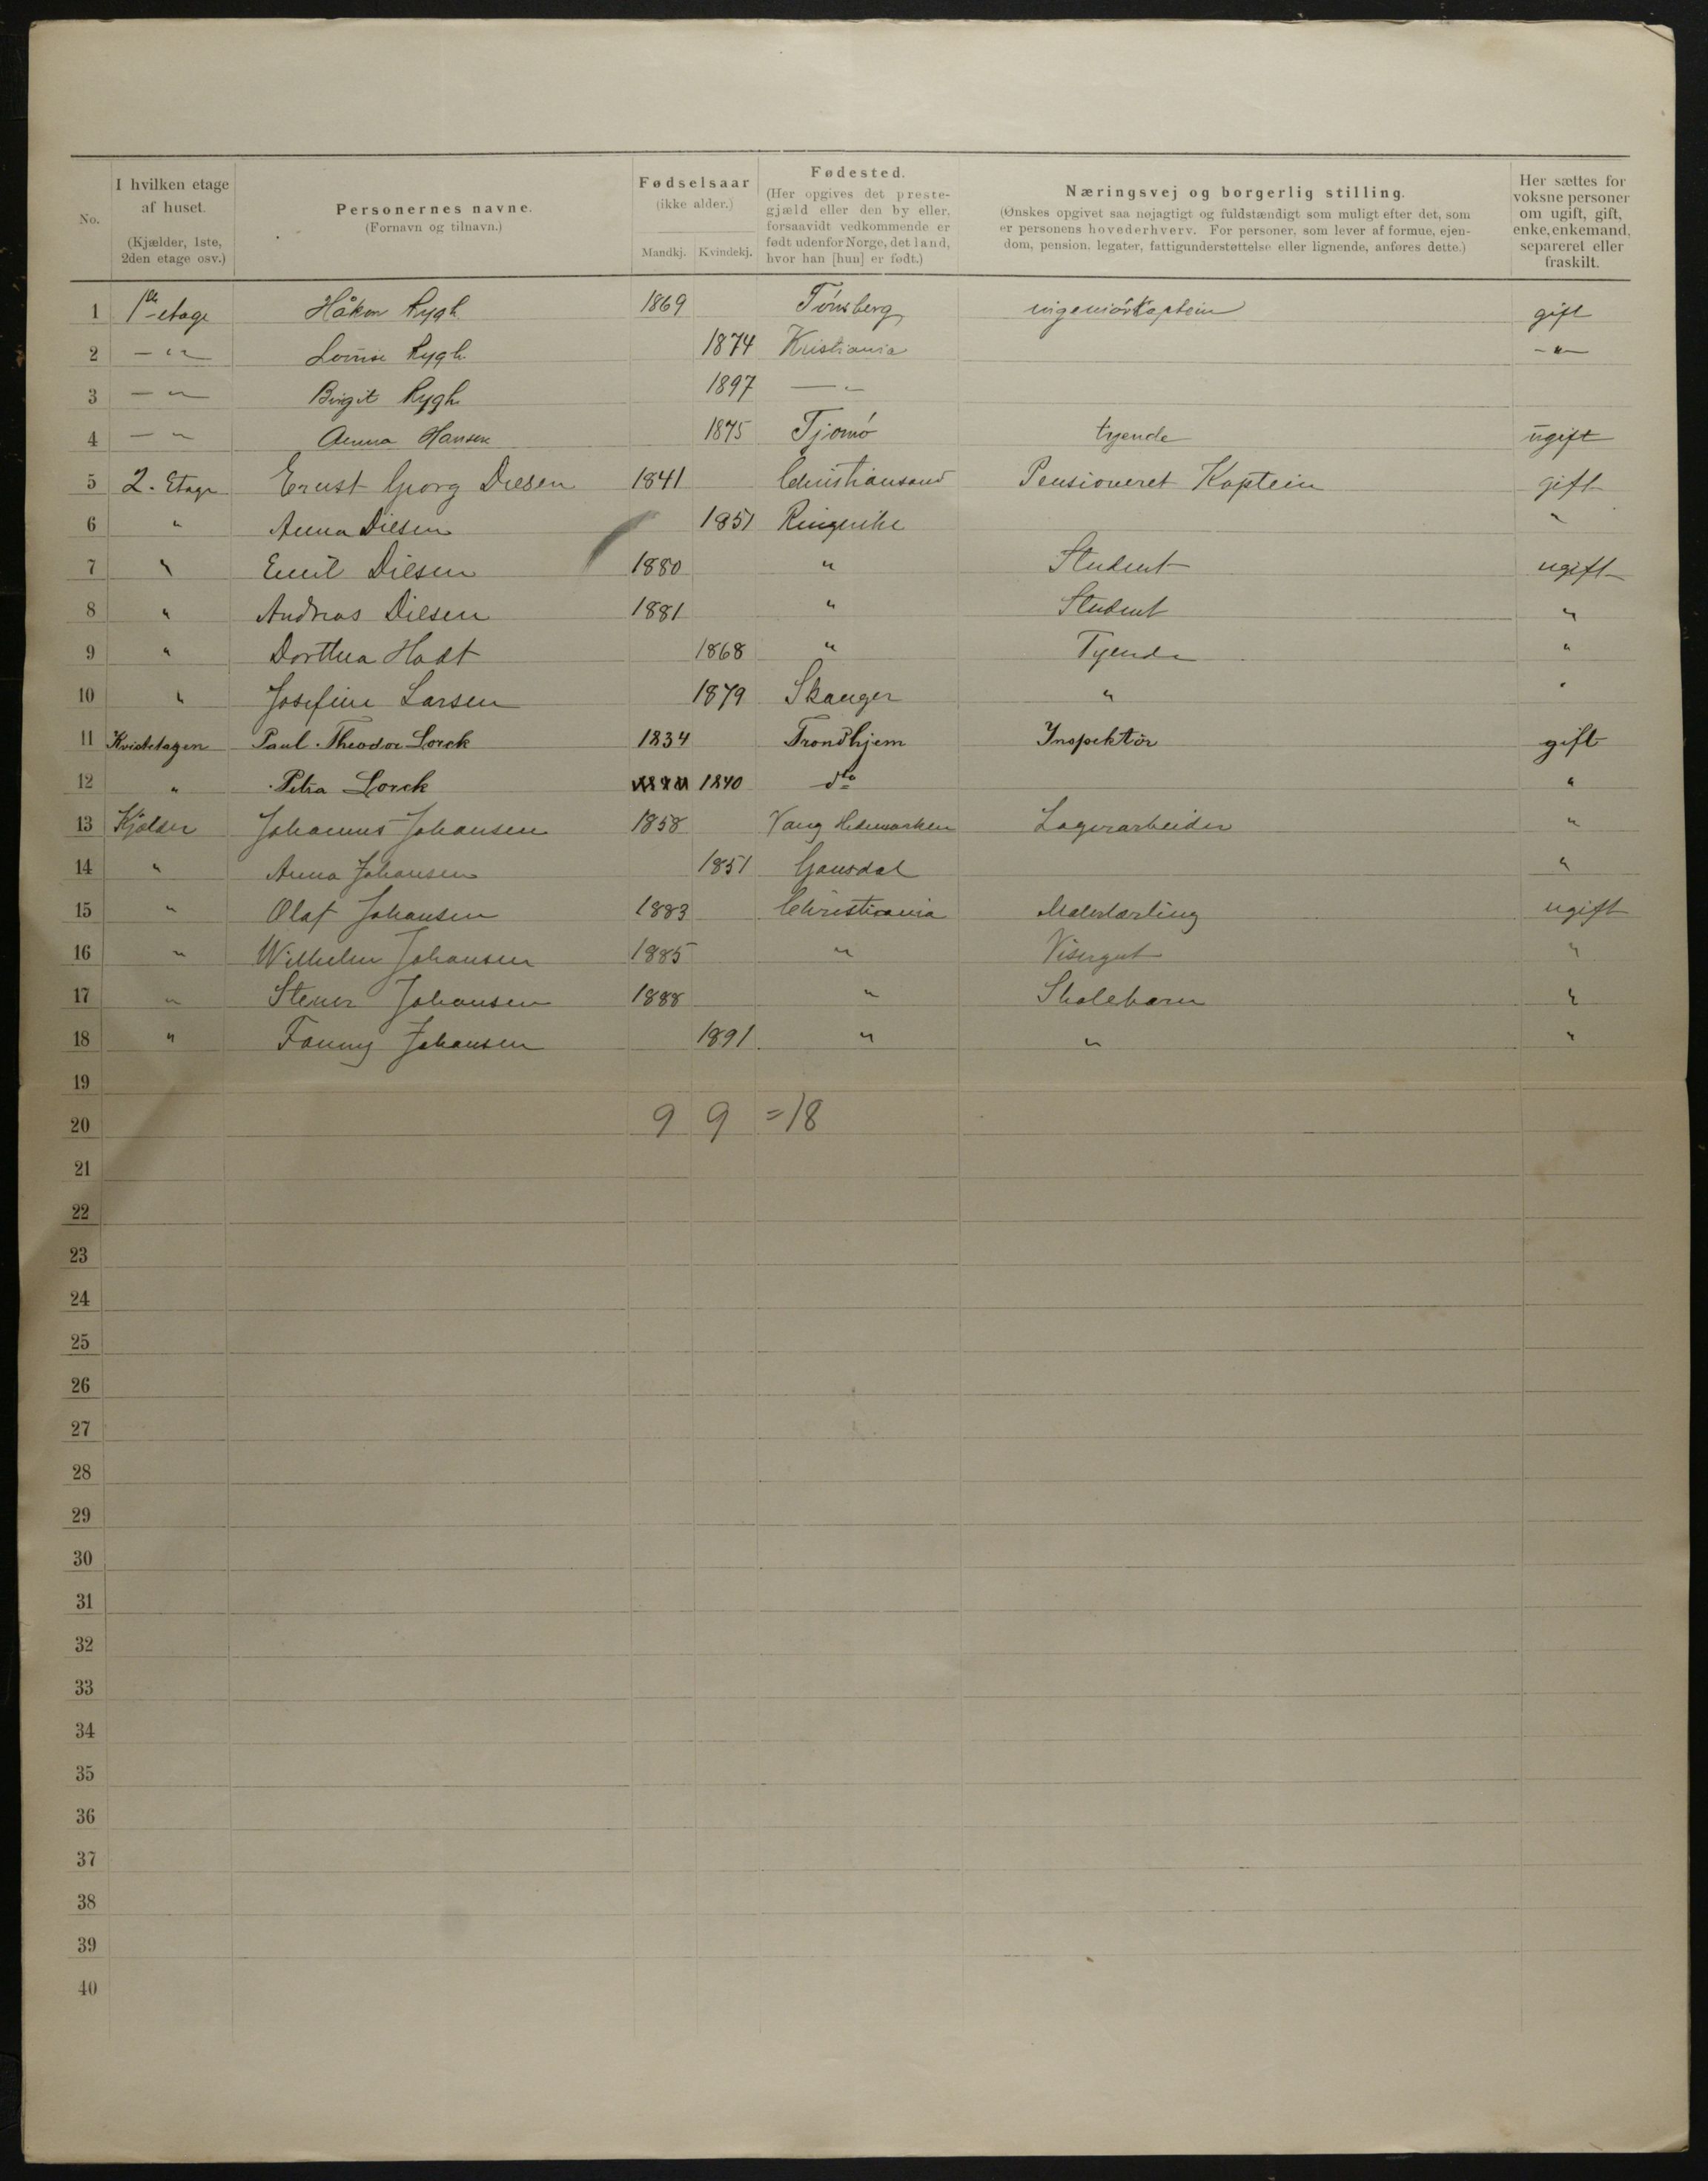 No.
I hvilken etage af huset. (Kjælder, 1ste, 2den etage osv.)
Personernes navne. (Fornavn og tilnavn.)
Fødselsaar (ikke alder.) Mandkj. Kvindekj.
Fødested. (Her opgives det prestegjæld eller den by eller, forsaavidt vedkommende er født udenfor Norge, det land, hvor han [hun] er født.)
Næringsvej og borgerlig stilling. (Ønskes opgivet saa nøjagtigt og fuldstændigt som muligt efter det, som er personens hovederhverv. For personer, som lever af formue, ejendom, pension, legater, fattigunderstøttelse eller lignende, anføres dette.)
Her sættes for voksne personer om ugift, gift, enke, enkemand, separeret eller fraskilt.
1 1ste etage Håkon Rygh 1869 Tønsberg ingeniörkaptein gift
2 — " — Lovise Rygh 1874 Kristiania — " —
3 — " — Birgit Rygh 1897 — "
4 — " Anna Hansen 1875 Tjømø tyende ugift
5 2. Etage Ernst Georg Diesen 1841 Christiansand Pensioneret Kaptein gift
6 " Anna Diesen 1851 Ringerike "
7 " Emil Diesen 1880 " Student ugift
8 " Andreas Diesen 1881 " Student "
9 " Dorthea Hadt 1868 " Tyende "
10 " Josefine Larsen 1879 Skauger " "
11 Kvistetagen Paul Theodor Lorck 1834 Trondhjem Inspektör gift
12 " Petra Lorck 1840 do "
13 Kjelder Johannes Johansen 1858 Vang Hedemarken Lagerarbeider "
14 " Anna Johansen 1851 Gausdal "
15 " Olaf Johansen 1883 Christiania Malerlærling ugift
16 " Wilhelm Johansen 1885 " Visergut "
17 " Stener Johansen 1888 " Skolebarn "
18 " Fanny Johansen 1891 " " "
19
20 9 9 =18
21
22
23
24
25
26
27
28
29
30
31
32
33
34
35
36
37
38
39
40